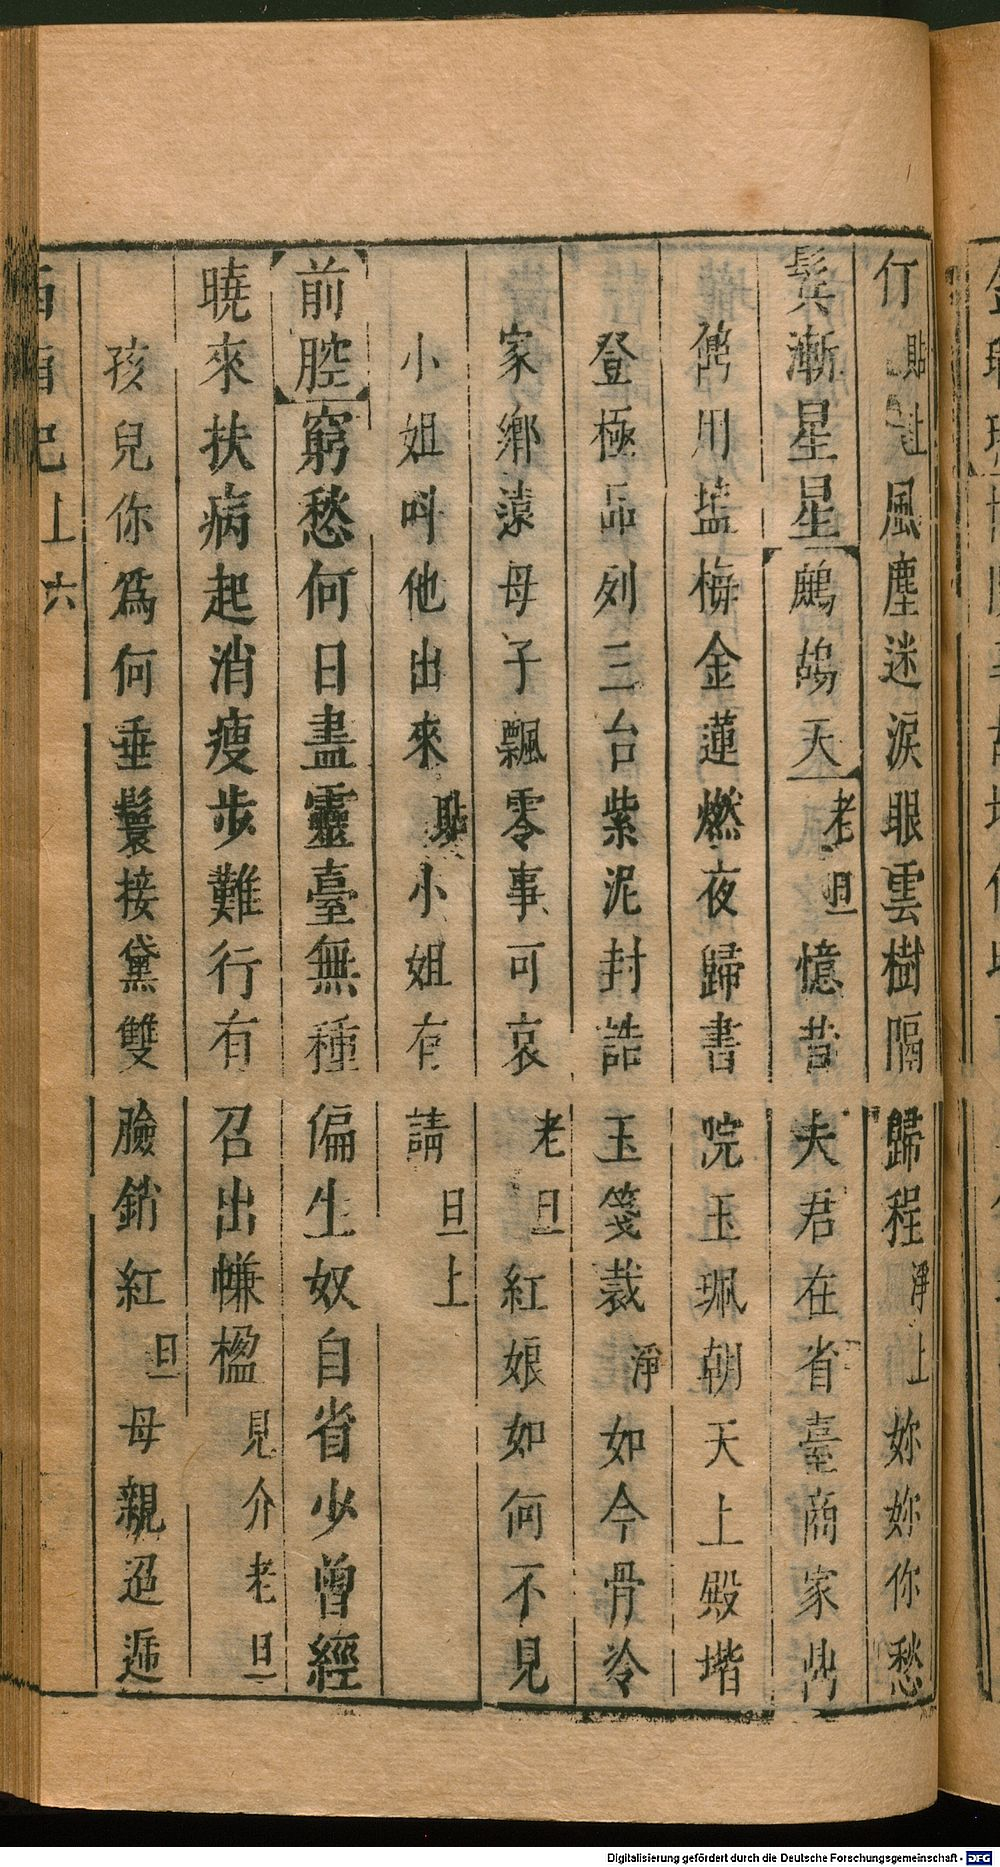 行貼上風塵迷淚眼雲樹隔歸程淨上妳妳你愁
鬂漸星星鷓鴣天老旦憶昔夫君在省臺商家鼎
鼐用塩梅金蓮燃夜歸書院玉珮朝天上殿堦
登極品列三台紫泥封誥玉箋裁淨如今骨冷
家鄉遠母子飄零事可哀老旦紅娘如何不見
小姐呌他出來貼小姐有請旦上
前腔窮愁何日盡靈臺無種偏生奴自省少曾經
曉來扶病起消瘦步難行有召出㡘楹見介老旦
孩兒你爲何垂鬟接黛雙臉銷紅旦母親迢遞
西廂記上六
Digitalisierung gefördert durch die Deutsche Forschungsgemeinschaft - DFG